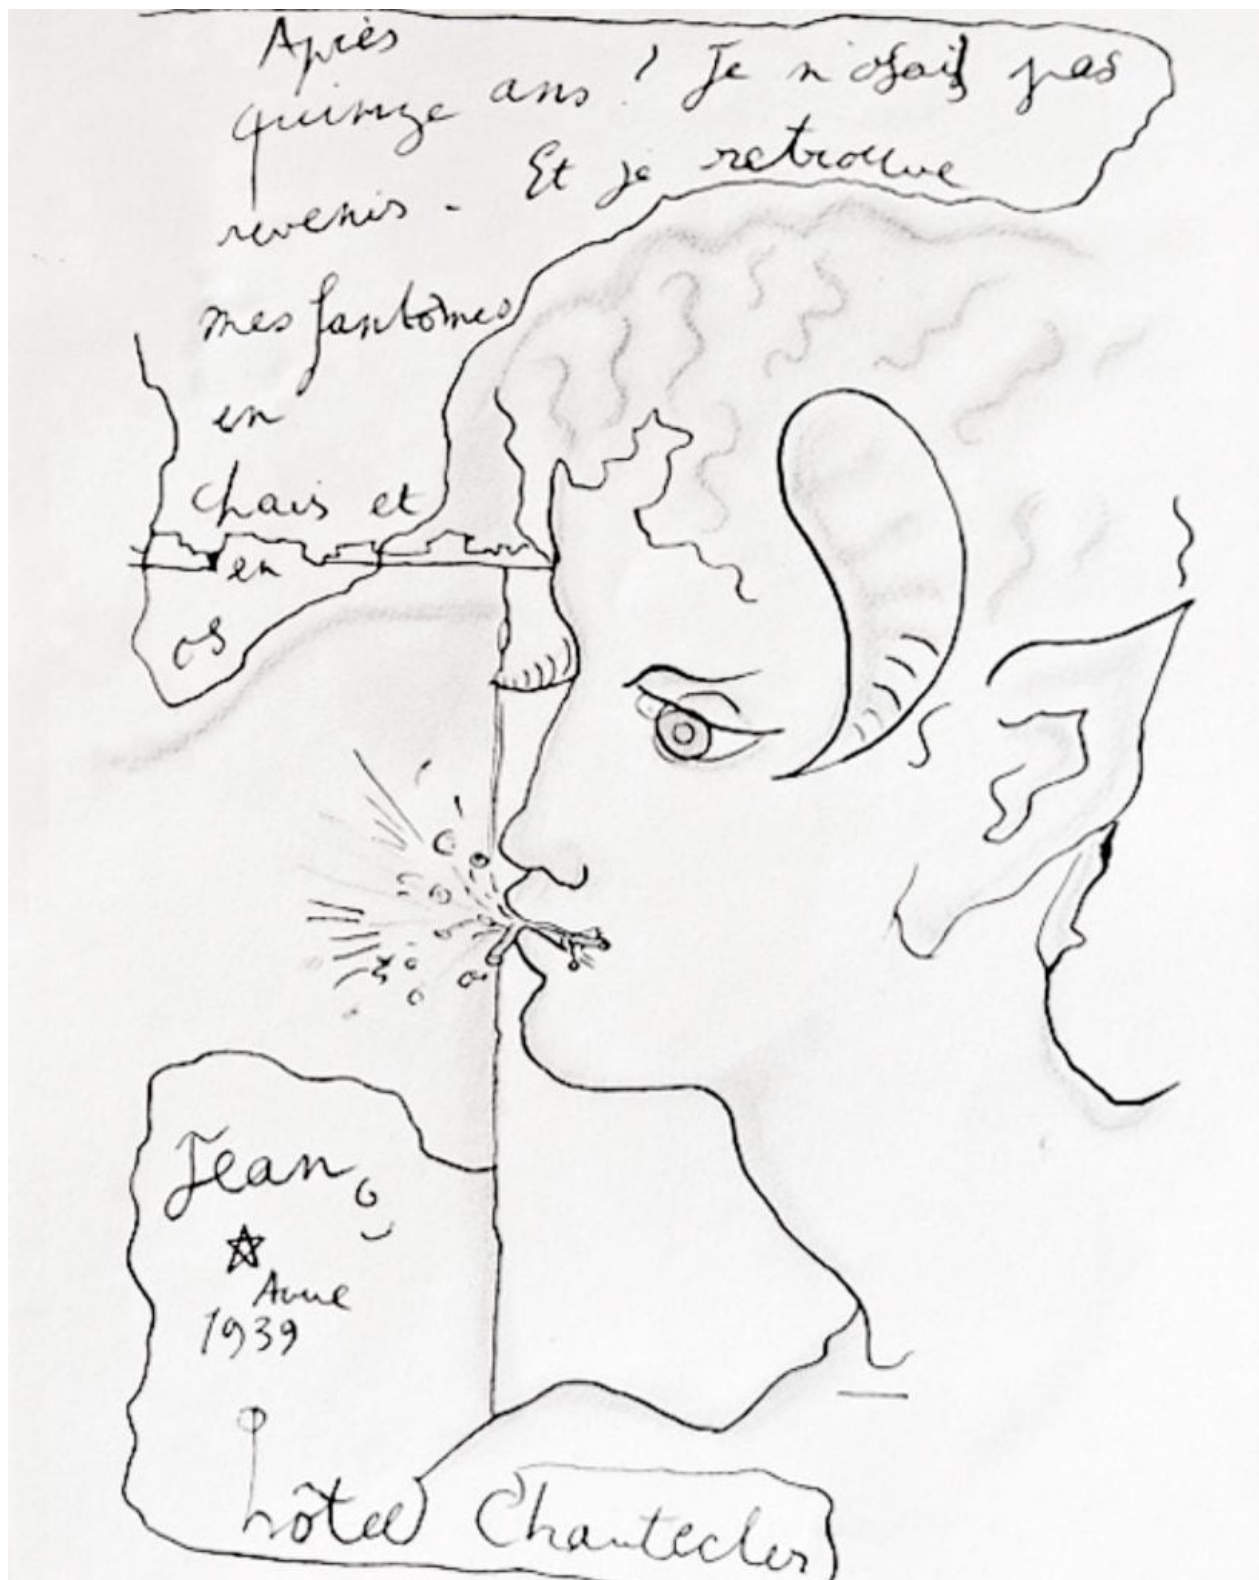 Après
quinze ans ! Je n'osais pas
revenir - Et je retrouve
mes fantômes
en
chair et
en
os
Jean
Anne
1939
hôtel Chantecler